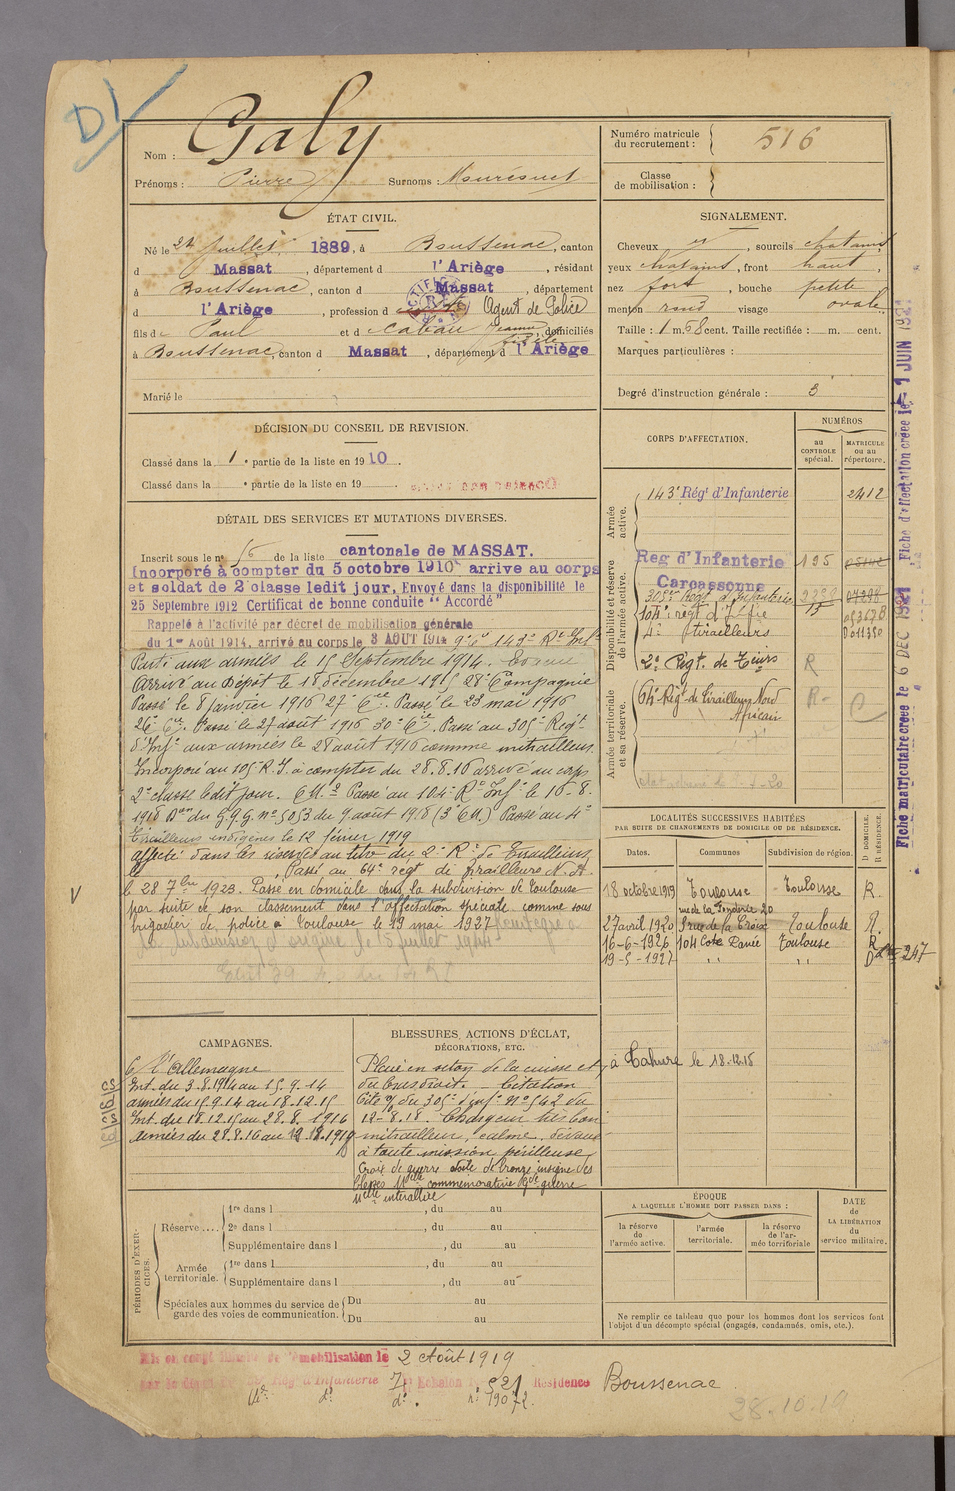 D1
Galy
Nom :
Prénoms : Pierre Surnoms : Mourésuet
Numéro matricule du recrutement : 516
Classe de mobilisation :
ÉTAT CIVIL.
Né le 24 juillet 1889, à Boussenac, canton
d Massat, département d l'Ariège, résidant
à Boussenac, canton d Massat, département
d l'Ariège, profession d Agent de Police
fils de Paul et d Cabau Jeanne domiciliés
à Boussenac, canton d Massat, département d l'Ariège
Marié le
SIGNALEMENT.
Cheveux , sourcils chatains
yeux chatains, front haut,
nez fort, bouche petite
menton rond visage ovale
Taille : 1 m. 68 cent. Taille rectifiée : m. cent.
Marques particulières :
Degré d'instruction générale : 3
DÉCISION DU CONSEIL DE REVISION.
Classé dans la 1e partie de la liste en 1910.
Classé dans la e partie de la liste en 19 .
DÉTAIL DES SERVICES ET MUTATIONS DIVERSES.
Inscrit sous le n° 56 de la liste cantonale de MASSAT.
Incorporé à compter du 5 octobre 1910 arrivé au corps
et soldat de 2e classe ledit jour. Envoyé dans la disponibilité le
25 Septembre 1912 Certificat de bonne conduite "Accordé"
Rappelé à l'activité par décret de mobilisation générale
du 1er Août 1914, arrivé au corps le 3 AOUT 1914 143e Rt Inf
Parti aux armées le 15 Septembre 1914. Evacué
Arrivé au Dépôt le 18 décembre 1915 28e Compagnie
Passé le 8 janvier 1916 27e Cie. Passé le 23 mai 1916
26e Cie. Passé le 27 août 1916 30e Cie. Passé au 305e Regt
d'Infie aux armées le 28 août 1916 comme mitrailleur.
Incorporé au 305 R.I. à compter du 28.8.16 arrivé au corps
2e classe ledit jour. C.M.2 Passé au 104e Rt Infie le 16-8.
1918 Don du G.Q.G. n° 5053 du 9 août 1918 (3e C.M.) Passé au 4e
Tirailleurs indigènes le 12 février 1919
affecté dans les réserves au titre du 2e Rt de Tirailleurs
Passé au 64e regt de tirailleurs N.A.
le 28 7bre 1923. Passé en domicile dans la subdivision de Toulouse
par suite de son classement dans l'affectation spéciale comme sous
brigadier de police à Toulouse le 19 mai 1927 Réintégré à
la subdivision d'origine le 15 juillet 1944
CORPS D'AFFECTATION.
NUMÉROS
au CONTROLE spécial.
MATRICULE ou au répertoire.
Armée active.
143e Régt d'Infanterie 2412
Disponibilité et réserve de l'armée active.
Reg d'Infanterie Carcassonne 195
305e Regt d'Infanterie
104e régt d'Infie
4e tirailleurs
2e Régt. de Tirs R
Armée territoriale et sa réserve.
64e Régt de Tirailleurs Nord Africain R
LOCALITÉS SUCCESSIVES HABITÉES
PAR SUITE DE CHANGEMENTS DE DOMICILE OU DE RÉSIDENCE.
Dates. Communes Subdivision de région. D DOMICILE. R RÉSIDENCE.
18 octobre 1919 Toulouse Toulouse R.
rue de la Fonderie 20
27 avril 1920 9 rue de la Croix Toulouse R.
16-6-1926 104 Cote Pavée Toulouse R
19-5-1927 " " D 247
CAMPAGNES.
C/ l'Allemagne
Int. du 3.8.1914 au 15.9.14
armées du 15.9.14 au 18.12.15
Int. du 18.12.15 au 28.8.1916
armées du 28.8.16 au 12.12.1919
BLESSURES, ACTIONS D'ÉCLAT,
DÉCORATIONS, ETC.
Plaie en séton de la cuisse et à Tahure le 18-12-15
du bras droit. — Citation
Cité o/ du 305e d'infie n° 542 du
12-8.18. Chargeur très bon
mitrailleur, calme. dévoué
à toute mission périlleuse
Croix de guerre étoile de bronze insigne des
blessés Mlle commémorative Gde guerre
Mlle interalliée
PÉRIODES D'EXERCICES.
Réserve ....
1re dans l , du au
2e dans l , du au
Supplémentaire dans l , du au
Armée territoriale.
1re dans l , du au
Supplémentaire dans l , du au
Spéciales aux hommes du service de garde des voies de communication.
Du au
Du au
ÉPOQUE
A LAQUELLE L'HOMME DOIT PASSER DANS :
la réserve de l'armée active.
l'armée territoriale.
la réserve de l'armée territoriale
DATE de LA LIBÉRATION du service militaire.
Ne remplir ce tableau que pour les hommes dont les services font
l'objet d'un décompte spécial (engagés, condamnés, omis, etc.).
Mis en congé illimité de démobilisation le 2 Août 1919
par le dépôt du Rég d'Infanterie 7e Echelon n° 921 Résidence Boussenac
d° d° n° 19072.
28-10-19
Fiche matriculaire créée le 6 DEC 1921
Fiche d'affectation créée le 1 JUIN 1921